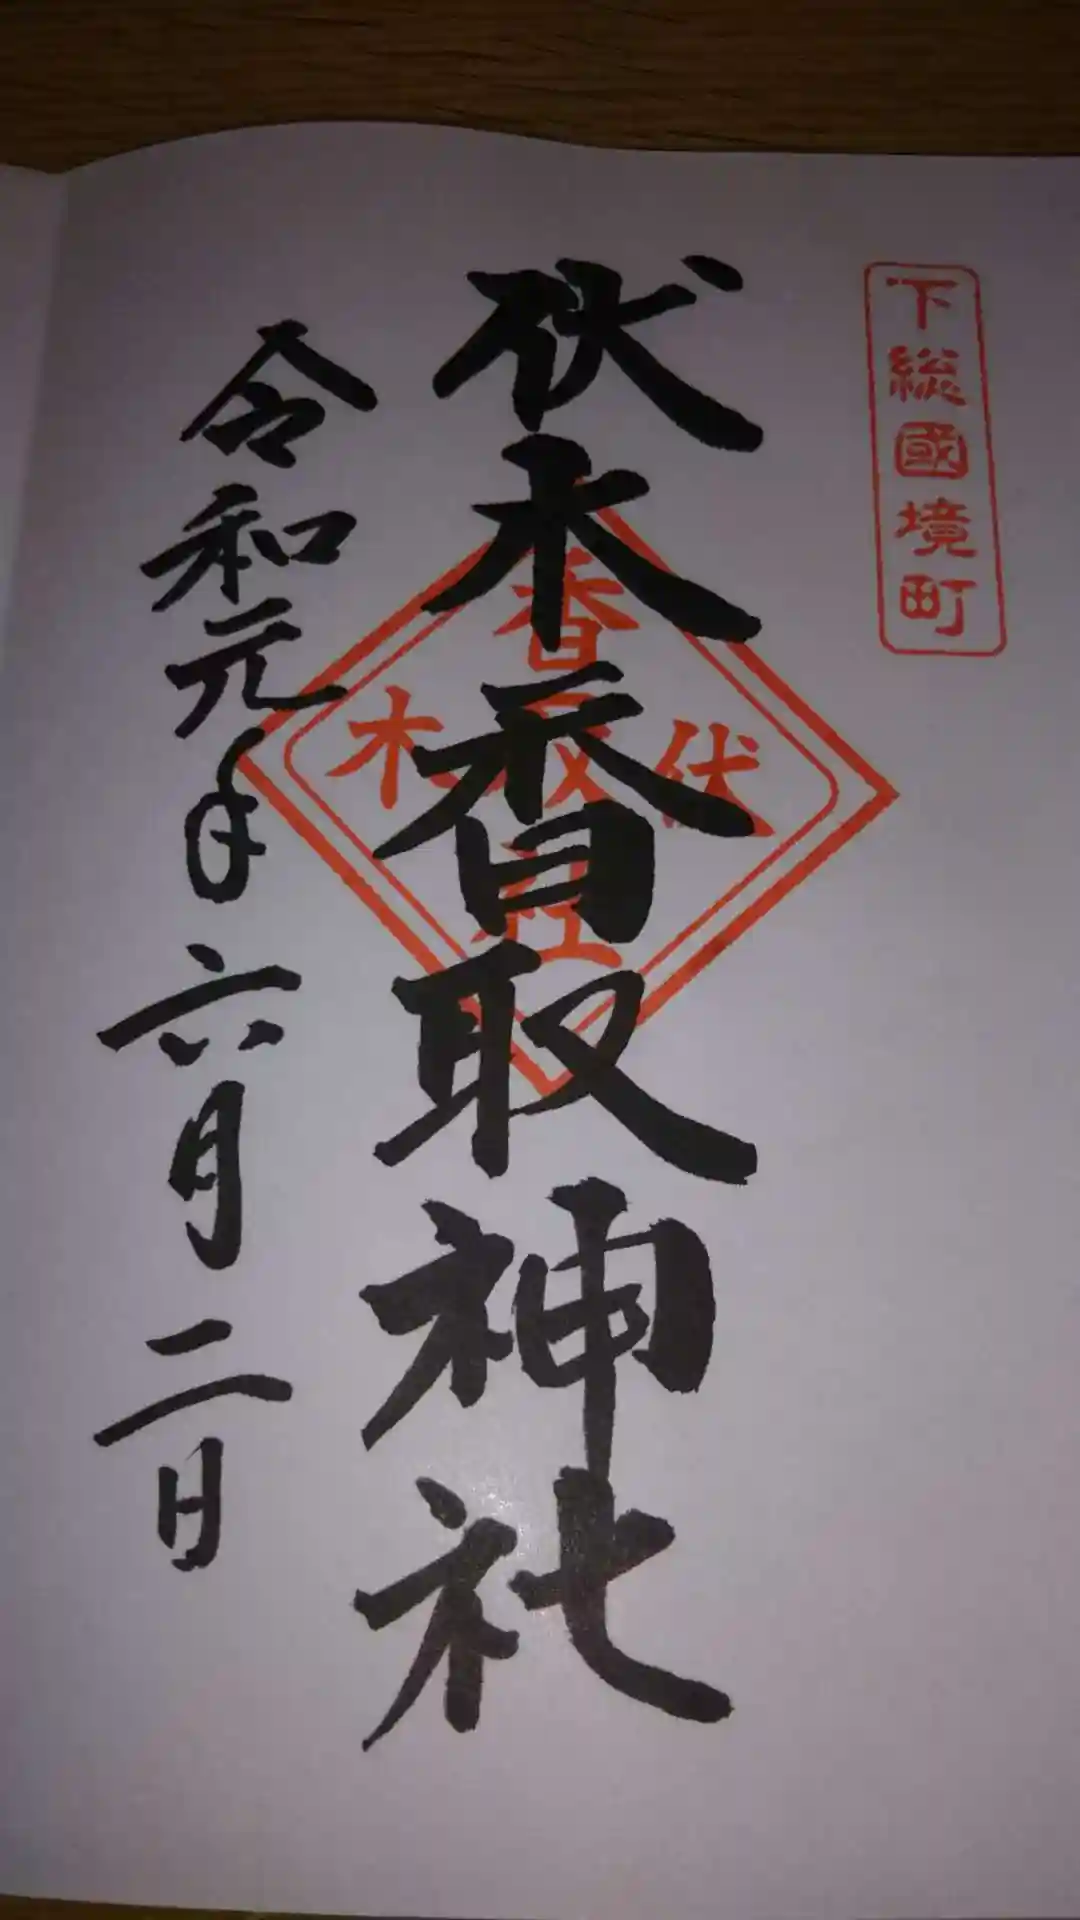 下総國境町
伏木香取神社
伏
香取社
木
令和元年六月二日